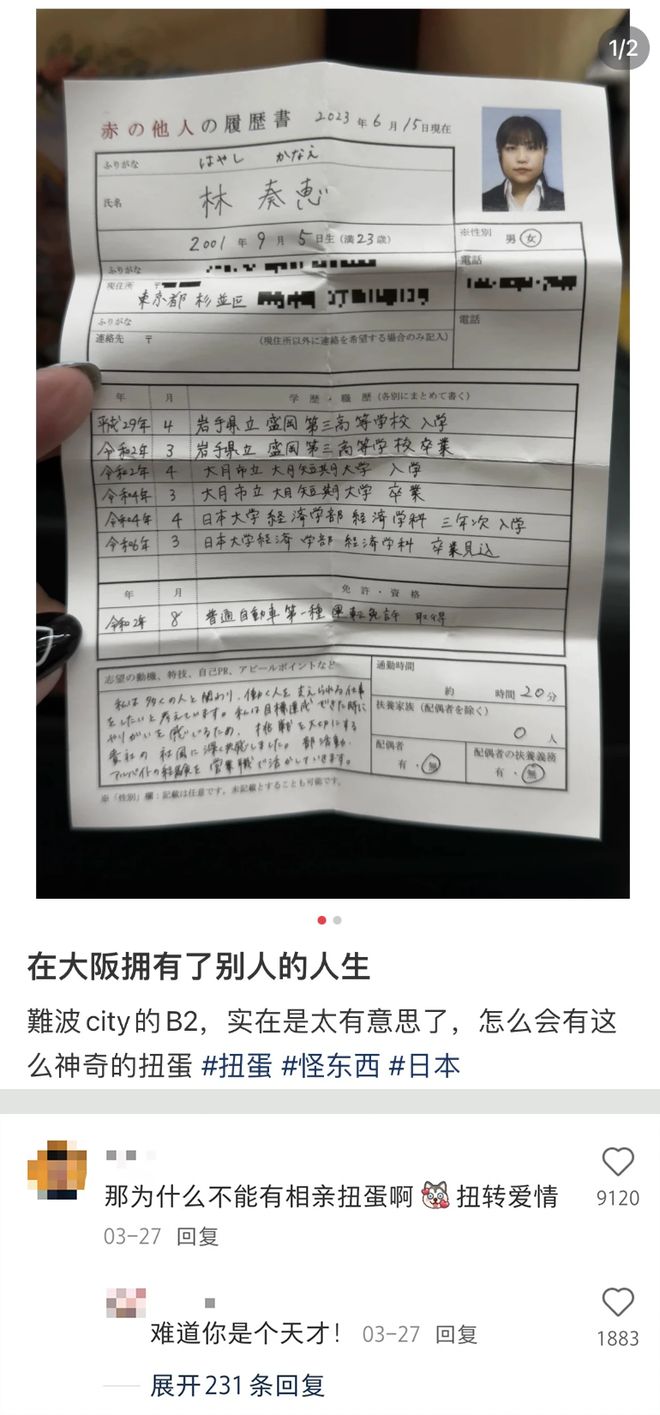 1/2
赤の他人の履歴書 2023年6月15日現在
ふりがな はやし かなえ
氏名 林 奏恵
2001年9月5日生(満23歳)
※性別 男・女
ふりがな
電話
現住所 〒
東京都 杉並区
ふりがな
電話
連絡先 〒 (現住所以外に連絡を希望する場合のみ記入)
年 月 学歴・職歴(各別にまとめて書く)
平成29年 4 岩手県立 盛岡第三高等学校 入学
令和2年 3 岩手県立 盛岡第三高等学校卒業
令和2年 4 大月市立 大月短期大学 入学
令和4年 3 大月市立 大月短期大学 卒業
令和4年 4 日本大学 経済学部 経済学科 三年次 入学
令和6年 3 日本大学経済学部 経済学科 卒業見込
年 月 免許・資格
令和2年 8 普通自動車第一種運転免許 取得
志望の動機、特技、自己PR、アピールポイントなど
私は多くの人と関わり、働く人を支えられる仕事
をしたいと考えています。私は目標達成できた時に
やりがいを感じるため、挑戦を大切にする
貴社の社風に深く共感しました。部活動、
アルバイトの経験を営業職で活かしていきます。
通勤時間
約 時間20分
扶養家族(配偶者を除く)
0人
配偶者
有・無
配偶者の扶養義務
有・無
※「性別」欄:記載は任意です。未記載とすることも可能です。
在大阪拥有了别人的人生
難波city的B2，实在是太有意思了，怎么会有这
么神奇的扭蛋 #扭蛋 #怪东西 #日本
那为什么不能有相亲扭蛋啊 扭转爱情
9120
03-27 回复
难道你是个天才！ 03-27 回复
1883
展开231条回复